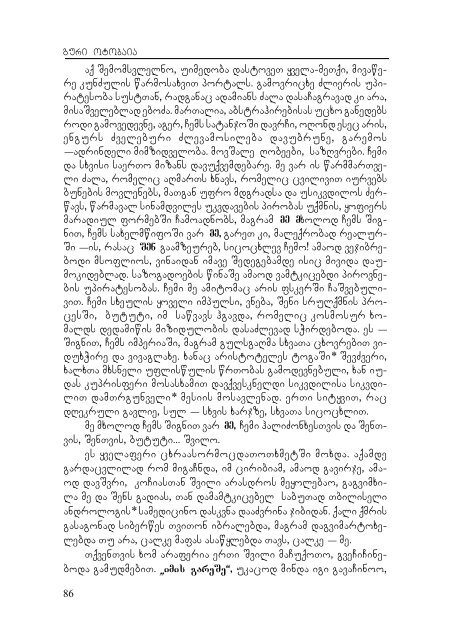 გური ოტობაია
აქ შემომსვლელნო, უიმედობა დასტოვეთ ყველა-მეთქი, მივაწე-
რე კუნძულის წარმოსახვით პორტალს. გამოვრიცხე ძლიერის უპი-
რატესობა სუსტთან, რადგანაც ადამიანს ძალა დასაჩაგრავად კი არა,
მისაშველებლად ებოძა. მართალია, აბსტრაპირებისას უცხო განედებს
როდი გამოვედევნე, აგერ, ჩემს სატანჯოში დავრჩი, ოღონდ ესეც არის,
ენგურს ძველებური ძლევამოსილება დავუბრუნე, გარემოს
—ადრინდელი მიმზიდველობა. მოვშალე ღობეები, საზღვრები. ჩემი
და სხვისი საერთო მიზანს დავუქვემდებარე. მე ვარ ის წარმმართვე-
ლი ძალა, რომელიც აღმართს ხნავს, რომელიც ცვილივით იურვებს
ბუნების მოვლენებს, მათგან უფრო მდგრადსა და უსიკვდილოს ძერ-
წავს, წარმავალ სინამდვილეს უკვდავების პირობას უქმნის, ყოფიერს
მარადიულ ფორმებში ჩამოადნობს, მაგრამ მე მხოლოდ ჩემს შიგ-
ნით, ჩემს სახელმწიფოში ვარ მე, გარეთ კი, მალექრობად რეალურ-
ში —ის, რასაც შენ გაამზეურებ, სიცოცხლევ ჩემო! ამაოდ ვეჯიბრე-
ბოდი მსოფლიოს, ვინაიდან იმავე შედეგებამდე ისიც მივიდა დაუ-
მოკიდებლად. საზოგადოების წინაშე ამაოდ ვამტკიცებდი პიროვნე-
ბის უპირატესობას. ჩემი მე ამიტომაც არის ფსკერში ჩაშვებული-
ვით. ჩემი სხეულის ყოველი იმპულსი, ვნება, შენი სრულქმნის პრო-
ცესში, ბუტუტი, იმ საწვავს ჰგავდა, რომელიც კოსმოსურ ხო-
მალდს დედამიწის მიზიდულობის დასაძლევად სჭირდებოდა. ეს —
შიგნით, ჩემს იმპერიაში, მაგრამ გულსგაღმა სხვათა ცხოვრებით ვი-
დუხჭირე და ვივაგლახე. ხანაც არისტოტელეს ტოგაში* შევძვერი,
ხალხთა მხსნელი უფლისწულის წრთობას გამოდევნებული, ხან იუ-
დას კუპრისფერი მოსასხამით დავქვესკნელდი სიკვდილისა სიკვდი-
ლით დამთრგუნველი* მესიის მოსავლენად. ერთი სიტყვით, რაც
დღეკრული გავლიე, სულ — სხვის ხარჯზე, სხვათა სიცოცხლით.
მე მხოლოდ ჩემს შიგნით ვარ მე, ჩემი ჰალიძონხესთვის და შენთ-
ვის, შენთვის, ბუტუტი... შვილო.
ეს ყველაფერი ცხრაასორმოცდათოთხმეტში მოხდა. აქამდე
გარდაცვლილად რომ მიგაჩნდა, იმ ცირიბიამ, ამაოდ გავირჯე, ამა-
ოდ დავშვრი, კოჩიასთან შვილი არასდროს მეყოლებაო, გაგვიმხი-
ლა მე და შენს გადიას, თან დამამტკიცებელ საბუთად თბილისელი
ანდროლოგის* სამედიცინო დასკვნა დააძვრინა ჯიბიდან. ქალი ქმრის
გასაგონად სიბერწეს თვითონ იბრალებდა, მაგრამ დაგვიმარტოხე-
ლებდა თუ არა, ცალკე მაფას ასაწყლებდა თავს, ცალკე — მე.
თქვენთვის ხომ არაფერია ერთი შვილი მაჩუქოთო, გვეჩიჩინე-
ბოდა გამუდმებით. „იმის გარეშე“, უკაცოდ მინდა იგი გავაჩინოო,
86